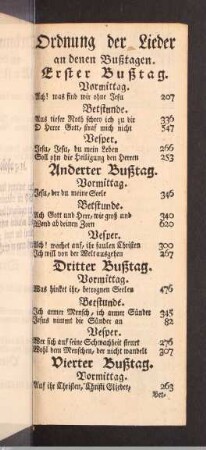 Ordnung der Lieder
an denen Bußtagen.
Erster Bußtag.
Vormittag.
Ach! was sind wir ohne Jesu 207
Betstunde.
Aus tiefer Noth schrey ich zu dir 336
O Herre Gott, straf mich nicht 547
Vesper.
Jesu, Jesu, du mein Leben 266
Soll ohn die Heiligung den Herren 253
Anderter Bußtag.
Vormittag.
Jesu, der du meine Seele 346
Betstunde.
Ach Gott und Herr, wie groß und 340
Wend ab deinen Zorn 620
Vesper.
Ach! wachet auf, ihr faulen Christen 300
Ich will von der Welt ausgehen 267
Dritter Bußtag.
Vormittag.
Was hinket ihr, betrognen Seelen 476
Betstunde.
Ich armer Mensch, ich armer Sünder 345
Jesus nimmt die Sünder an 82
Vesper.
Wer sich auf seine Schwachheit steuret 276
Wohl dem Menschen, der nicht wandelt 307
Vierter Bußtag.
Vormittag.
Auf ihr Christen, Christi Glieder, 263
Bet-